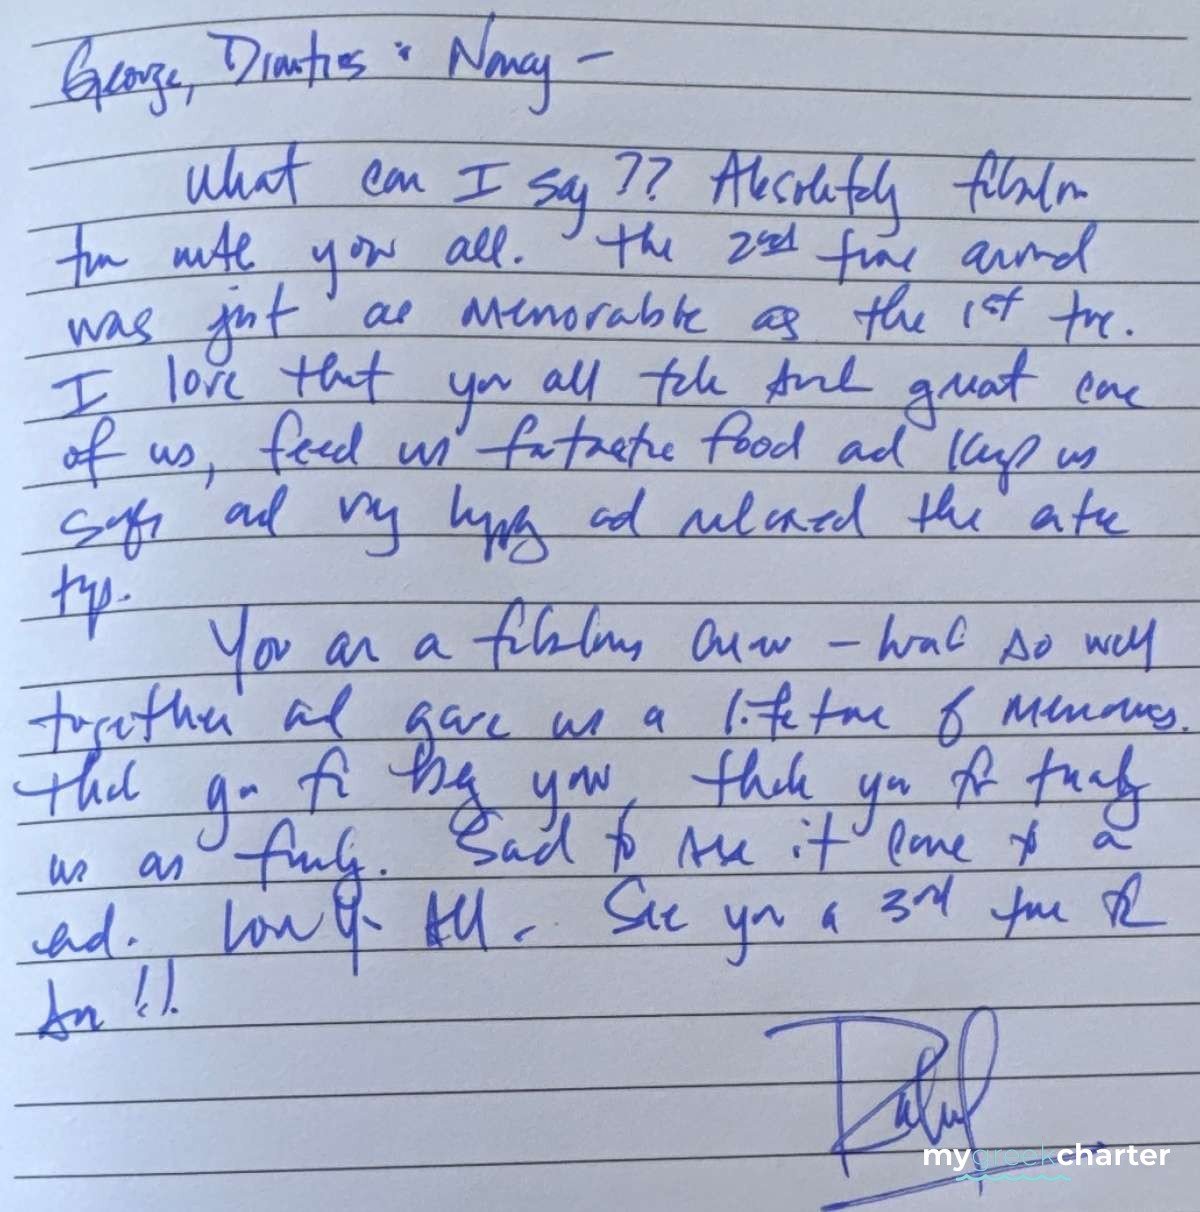 George, Dimitris & Nancy -
What can I say ?? Absolutely fabulous
time with you all. The 2nd time around
was just as memorable as the 1st time.
I love that you all take such great care
of us, feed us fantastic food and keep us
safe and very happy and relaxed the entire
trip.
You are a fabulous crew - work so well
together and gave us a lifetime of memories.
Thank you for being you, thank you for treating
us as family. Sad to see it come to a
end. Love you All. See you a 3rd time for
sure !!
Rahul
mygreekcharter